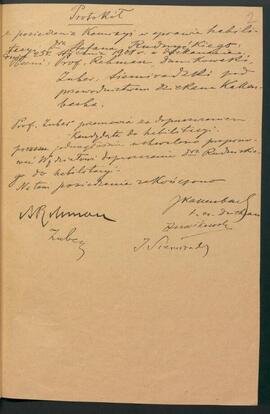 2
Protokół
z posiedzenia Komisyi w sprawie habili-
tacyi Dra Stefana Rudnyckiego
Prof. Rehman, Dunikowski,
Zuber, Siemiradzki pod
przewodnictwem dziekana Kallen-
bacha.
Prof. Zuber przemawia za dopuszczeniem
Kandydata do habilitacyi.
poczem jednogłośnie uchwalono propono-
wać Wydziałowi dopuszczenie dra Rudnickie-
go do habilitacyi.
Na tem posiedzenie zakończono
A Rehman
J Kallenbach
Zuber
Dunikowski
J. Siemiradzki